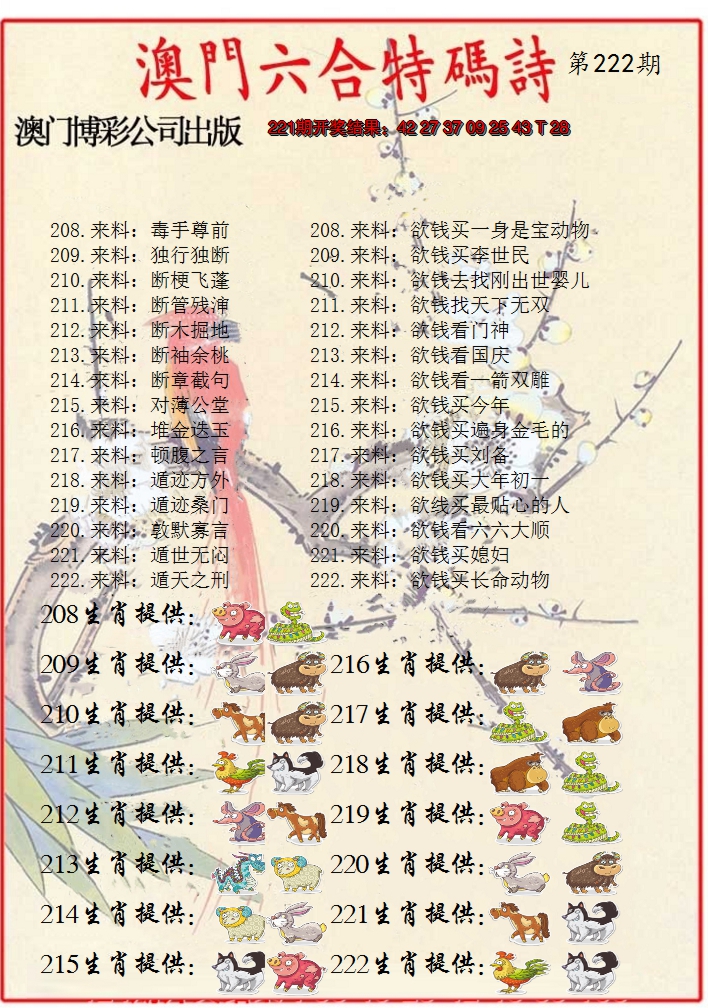 澳門六合特碼詩 第222期
澳门博彩公司出版 221期开奖结果：42 27 37 09 25 43 T 28
208.来料：毒手尊前 208.来料：欲钱买一身是宝动物
209.来料：独行独断 209.来料：欲钱买李世民
210.来料：断梗飞蓬 210.来料：欲钱去找刚出世婴儿
211.来料：断管残渖 211.来料：欲钱找天下无双
212.来料：断木掘地 212.来料：欲钱看门神
213.来料：断袖余桃 213.来料：欲钱看国庆
214.来料：断章截句 214.来料：欲钱看一箭双雕
215.来料：对薄公堂 215.来料：欲钱买今年
216.来料：堆金迭玉 216.来料：欲钱买遍身金毛的
217.来料：顿腹之言 217.来料：欲钱买刘备
218.来料：遁迹方外 218.来料：欲钱买大年初一
219.来料：遁迹桑门 219.来料：欲线买最贴心的人
220.来料：敦默寡言 220.来料：欲钱看六六大顺
221.来料：遁世无闷 221.来料：欲钱买媳妇
222.来料：遁天之刑 222.来料：欲钱买长命动物
208生肖提供：
209生肖提供： 216生肖提供：
210生肖提供： 217生肖提供：
211生肖提供： 218生肖提供：
212生肖提供： 219生肖提供：
213生肖提供： 220生肖提供：
214生肖提供： 221生肖提供：
215生肖提供： 222生肖提供：